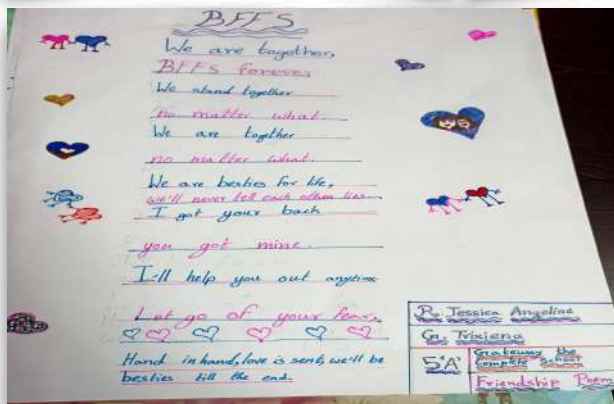 BFFS
We are together,
BFFS Forever
We stand together
no matter what.
We are together
no matter what.
We are besties for life,
we'll never tell each other lies.
I got your back
you got mine.
I'll help you out anytime
Let go of your fear,
Hand in hand, love is sent, we'll be
besties till the end.
R. Jessica Angeline
G. Trixiena
5 'A'
Gateway the
complete School
Friendship Poem